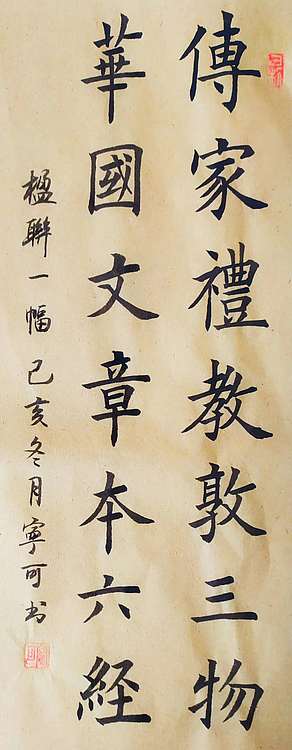 傳家禮教敦三物
華國文章本六経
楹聯一幅己亥冬月寧可书